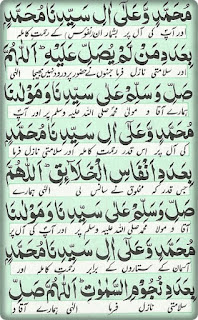 مُحَمَّدٍ وَّعَلٰٓى اٰلِ سَيِّدِنَا مُحَمَّدٍۢ
اور آپ کی آل پر بشمار ان نفوس کے رحمتِ کاملہ
بِعَدَدِ مَنْ لَّمْ يُصَلِّ عَلَيْهِ ۞ اَللّٰهُمَّ
اور سلامتی نازل فرما جنہوں نے حضور پر درود نہیں بھیجا الٰہی
صَلِّ وَسَلِّمْ عَلٰى سَيِّدِنَا وَمَوْلٰنَا
ہمارے آقا و مولیٰ محمد صلی اللہ علیہ وسلم پر اور آپ
مُحَمَّدٍ وَّعَلٰٓى اٰلِ سَيِّدِنَا مُحَمَّدٍۢ
کی آل پر اس قدر رحمت کاملہ اور سلامتی نازل فرما
بِعَدَدِ اَنْفَاسِ الْخَلَآئِقِ ۞ اَللّٰهُمَّ
جس قدر کہ مخلوق نے سانس لی الٰہی ہمارے
صَلِّ وَسَلِّمْ عَلٰى سَيِّدِنَا وَمَوْلٰنَا
آقا و مولا محمد صلی اللہ علیہ وسلم پر اور آپ کی آل پر
مُحَمَّدٍ وَّعَلٰٓى اٰلِ سَيِّدِنَا مُحَمَّدٍۢ
آسمان کے ستاروں کے برابر رحمتِ کاملہ اور
بِعَدَدِ نُجُوْمِ السَّمٰوٰتِ ۞ اَللّٰهُمَّ صَلِّ
سلامتی نازل فرما الٰہی ہمارے آقا و